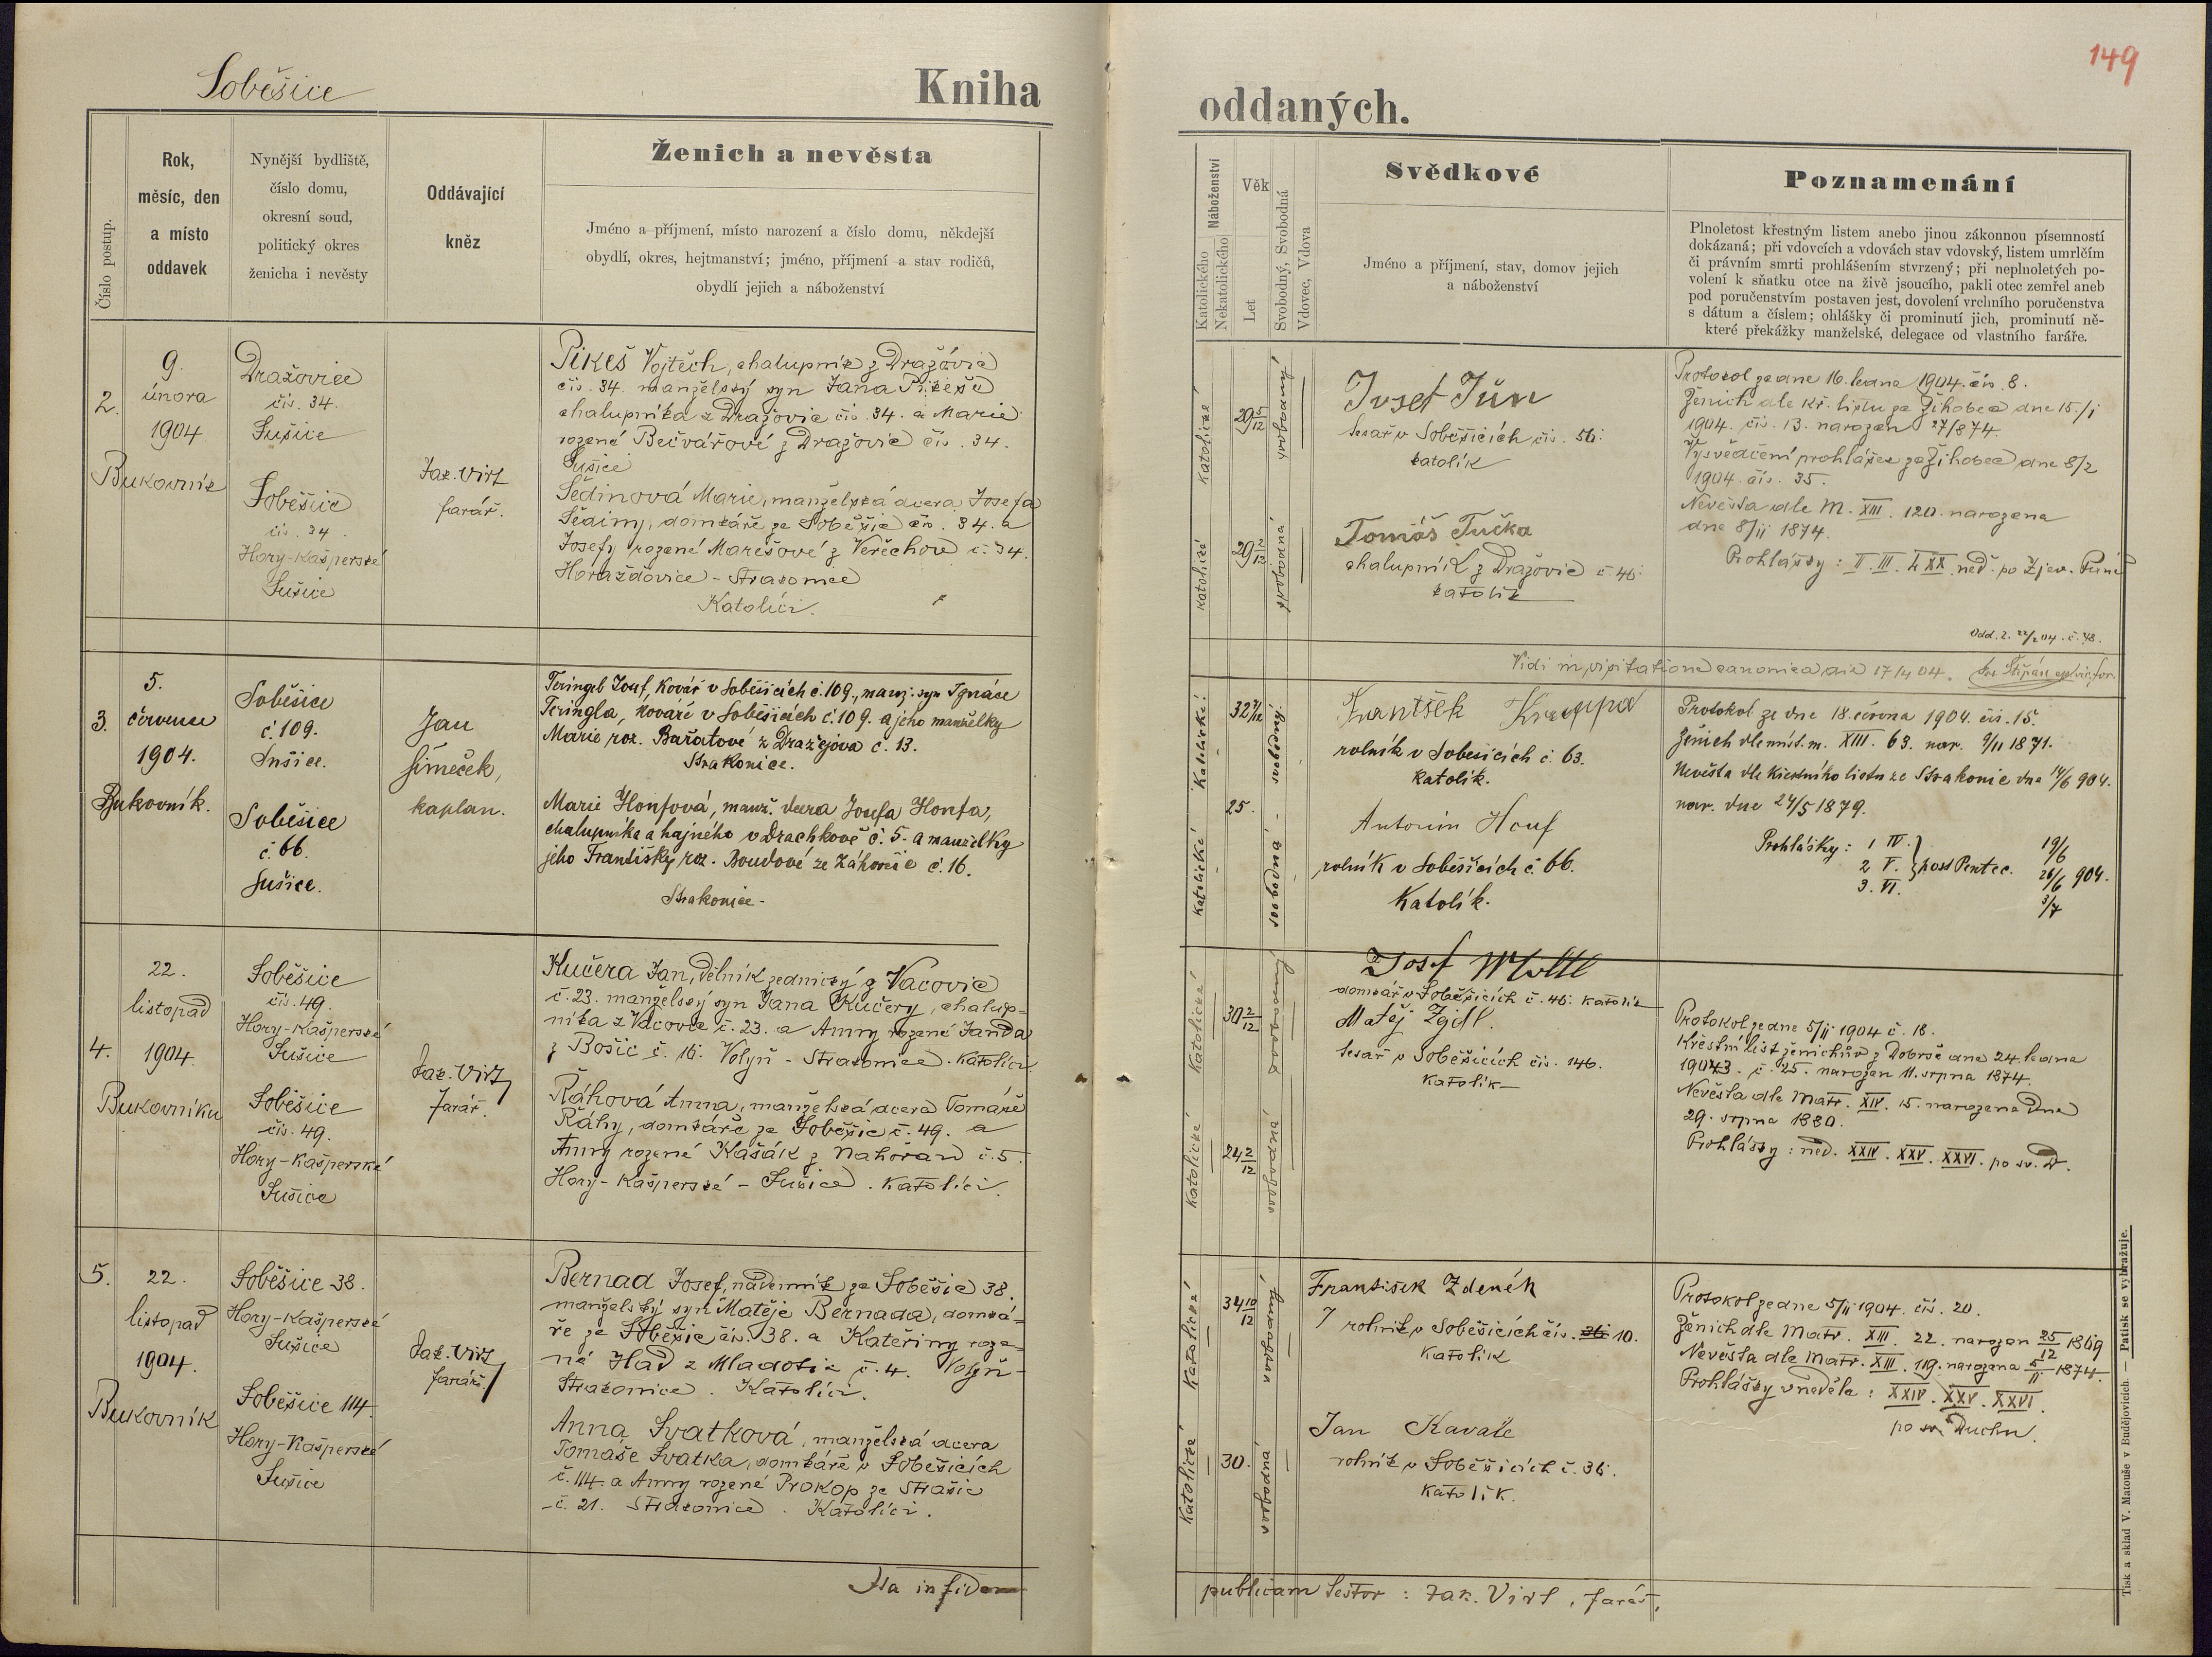 149
Soběšice
Kniha oddaných.
Číslo postup.
Rok,
měsíc, den
a místo
oddavek
Nynější bydliště,
číslo domu,
okresní soud,
politický okres
ženicha i nevěsty
Oddávající
kněz
Ženich a nevěsta
Jméno a příjmení, místo narození a číslo domu, někdejší
obydlí, okres, hejtmanství; jméno, příjmení a stav rodičů,
obydlí jejich a náboženství
Náboženství
Katolického
Nekatolického
Věk
Let
Svobodný, Svobodná
Vdovec, Vdova
Svědkové
Jméno a příjmení, stav, domov jejich
a náboženství
Poznamenání
Plnoletost křestným listem anebo jinou zákonnou písemností
dokázaná; při vdovcích a vdovách stav vdovský, listem umrlčím
či právním smrti prohlášením stvrzený; při neplnoletých po-
volení k sňatku otce na živě jsoucího, pakli otec zemřel aneb
pod poručenstvím postaven jest, dovolení vrchního poručenstva
s dátum a číslem; ohlášky či prominutí jich, prominutí ně-
které překážky manželské, delegace od vlastního faráře.
2.
9.
února
1904
Bukovník
Dražovice
čis. 34.
Sušice
Soběšice
čis. 34.
Hory-Kašperské
Sušice
Jak. Virt
farář.
Pikeš Vojtěch, chalupník z Dražovic
čis. 34. manželský syn Jana Pikeše
chalupníka z Dražovic čis. 34. a Marie
rozené Bečvářové z Dražovic čis. 34.
Sušice
Šedinová Marie, manželská dcera Josefa
Šediny, domkáře ze Soběšic čis. 34. a
Josefy rozené Marešové z Veřechov č. 34.
Horažďovice - Strakonice
Katolíci.
katolické
29 5/12
svobodný
katolické
29 2/12
svobodná
Josef Jůn
tesař v Soběšicích čis. 56.
katolík
Tomáš Tučka
chalupník z Dražovic č. 46.
katolík
Protokol ze dne 16. ledna 1904. čis. 8.
Ženich dle kř. listu ze Žihobec dne 15./i
1904. čis. 13. narozen 27/8 74.
Vysvědčení prohlášek ze Žihobec dne 8/2
1904. čis. 35.
Nevěsta dle M. XIII. 120. narozena
dne 8/ii 1874.
Prohlášky: II. III. LXX. ned. po Zjev. Páně
Odd. 2. 22/2 04. č. 48.
Vidi in visitatione canonica die 17/4 04.
3.
5.
července
1904.
Bukovník.
Soběšice
č. 109.
Sušice.
Soběšice
č. 66.
Sušice.
Jan
Šimeček,
kaplan.
Teringl Josef, kovář v Soběšicích č. 109., manž. syn Ignáce
Teringla, kováře v Soběšicích č. 109. a jeho manželky
Marie roz. Bařatové z Dražejova č. 13.
Strakonice.
Marie Honfová, manž. dcera Josefa Honfa,
chalupníka a hajného v Drachkově č. 5. a manželky
jeho Františky roz. Boudové ze Záhořic č. 16.
Strakonice.
Katolické.
32 7/12
svobodný.
Katolické
25.
svobodná
František Kreuppa
rolník v Soběšicích č. 63.
katolík.
Antonín Houf
rolník v Soběšicích č. 66.
Katolík.
Protokol ze dne 18. června 1904. čís. 15.
Ženich dle míst. m. XIII. 63. nar. 9/11 1871.
Nevěsta dle křestního listu ze Strakonic dne 14/6 904.
nar. dne 24/5 1879.
Prohlášky: 1 IV. 19/6
2 V. post Pentec. 26/6 904.
3. VI. 3/7
4.
22.
listopad
1904.
Bukovníku
Soběšice
čis. 49.
Hory-Kašperské
Sušice
Soběšice
čis. 49.
Hory-Kašperské
Sušice
Jak. Virt
farář.
Kučera Jan, dělník zednický z Vacovic
č. 23. manželský syn Jana Kučery, chalup-
níka z Vacovic č. 23. a Anny rozené Janda
z Bošic č. 16. Volyň - Strakonice. Katolíci.
Ráhová Anna, manželská dcera Tomáše
Ráhy, domkáře ze Soběšic č. 49. a
Anny rozené Kašák z Nahořan č. 5.
Hory-Kašperské - Sušice. Katolíci.
Katolické
30 2/12
svobodný
Katolické
24 2/12
svobodná
Josef Möltl
domkář v Soběšicích č. 46. katolík
Matěj Zgidl.
tesař v Soběšicích čis. 146.
katolík
Protokol ze dne 5/ii 1904 č. 18.
Křestní list ženichův z Dobrše dne 24. ledna
1903. č. 25. narozen 11. srpna 1874.
Nevěsta dle Matr. XIV. 15. narozena dne
29. srpna 1880.
Prohlášky: ned. XXIV. XXV. XXVI. po sv. D.
5.
22.
listopad
1904.
Bukovník
Soběšice 38.
Hory-Kašperské
Sušice
Soběšice 114.
Hory-Kašperské
Sušice
Jak. Virt
farář.
Bernad Josef, nádenník ze Soběšic 38.
manželský syn Matěje Bernada, domká-
ře ze Soběšic čis. 38. a Kateřiny roze-
né Had z Mladotic č. 4. Volyň -
Strakonice. Katolíci.
Anna Svatková, manželská dcera
Tomáše Svatka, domkáře v Soběšicích
č. 114. a Anny rozené Prokop ze Strašic
č. 21. Strakonice. Katolíci.
Katolické
34 10/12
svobodný
Katolické
30.
svobodná
František Zdeněk
rolník v Soběšicích čis. 36 10.
katolík
Jan Kavale
rolník v Soběšicích č. 36.
katolík.
Protokol ze dne 5/ii 1904. čis. 20.
Ženich dle Matr. XIII. 22. narozen 25/12 1869
Nevěsta dle Matr. XIII. 119. narozena 5/11 1874.
Prohlášky v neděle: XXIV. XXV. XXVI.
po sv. Duchu.
Ita in fidem publicam testor: Jak. Virt, farář.
Tisk a sklad V. Matouše v Budějovicích. — Patisk se vyhražuje.